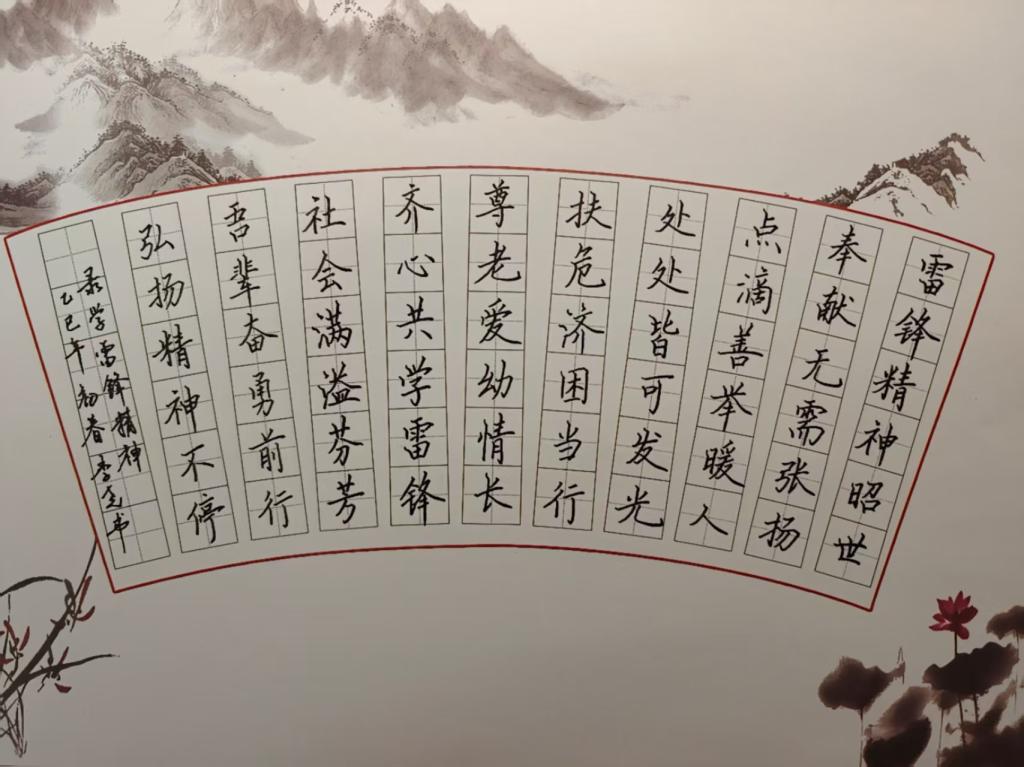 雷锋精神昭世
奉献无需张扬
点滴善举暖人
处处皆可发光
扶危济困当行
尊老爱幼情长
齐心共学雷锋
社会满溢芬芳
吾辈奋勇前行
弘扬精神不停
录学雷锋精神
乙巳年初春李书